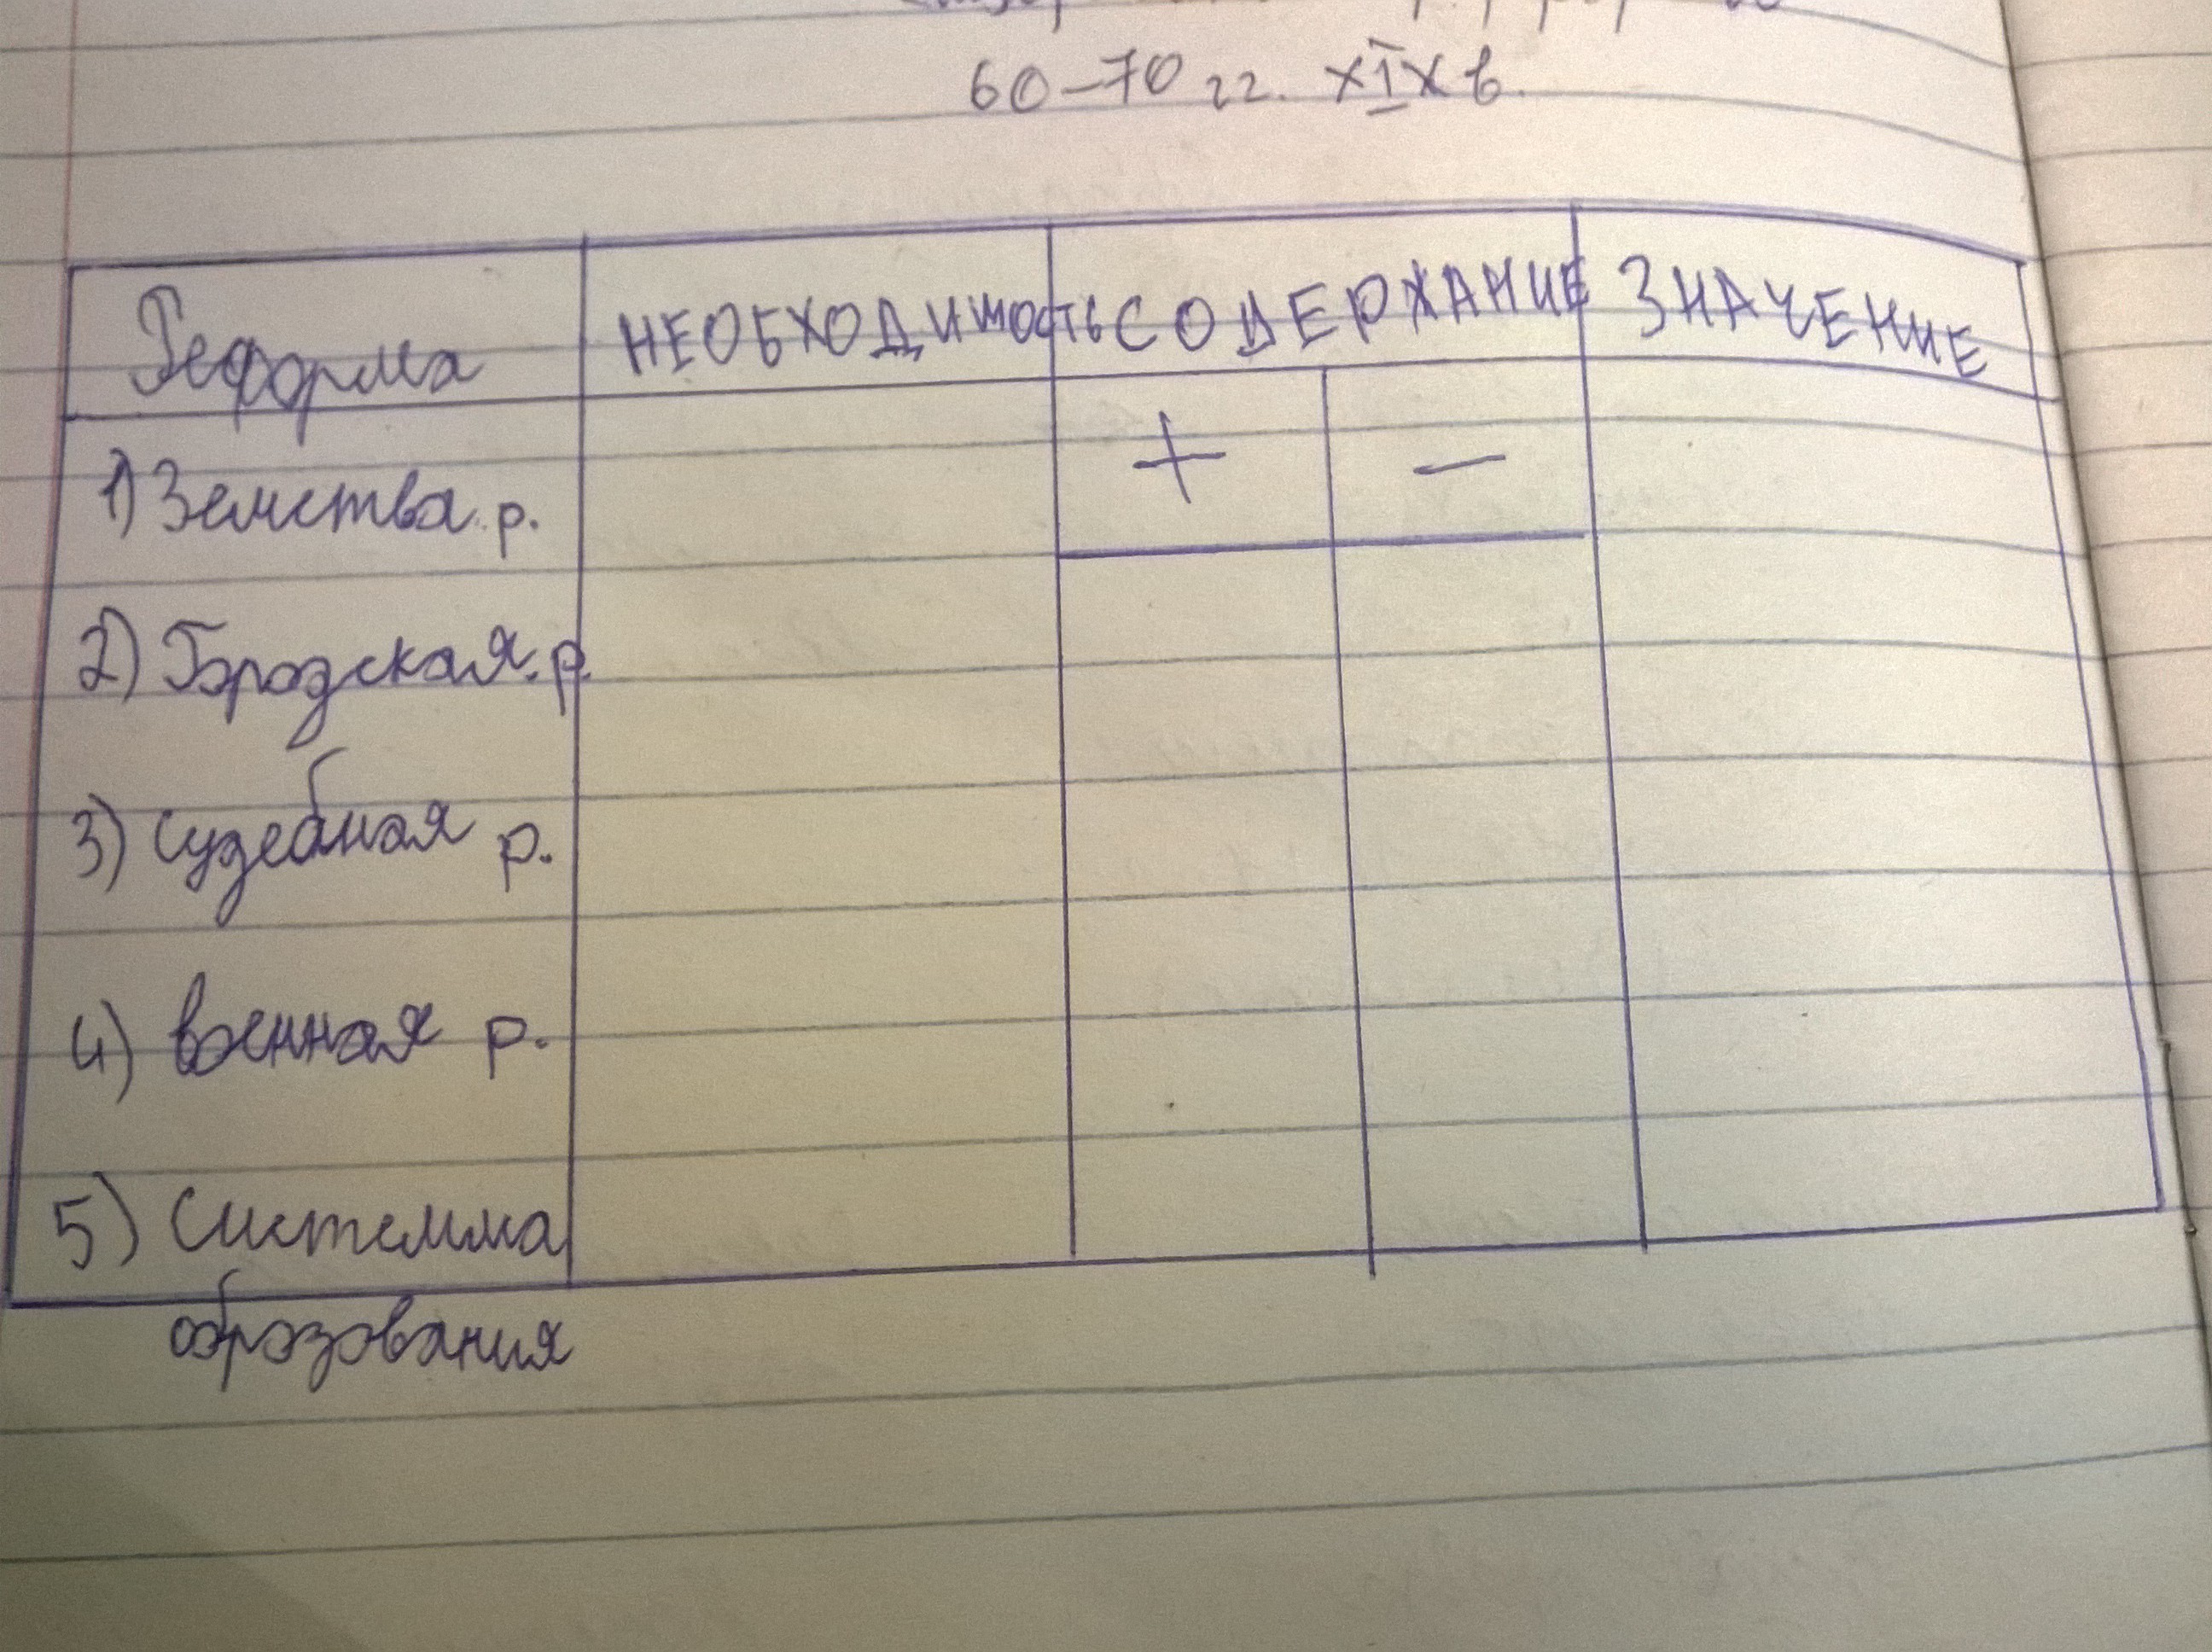 60-70 гг. XIX в.
Реформа НЕОБХОДИМОСТЬ СОДЕРЖАНИЕ ЗНАЧЕНИЕ
+ –
1) Земства р.
2) Городская р.
3) Судебная р.
4) военная р.
5) Системма
образования